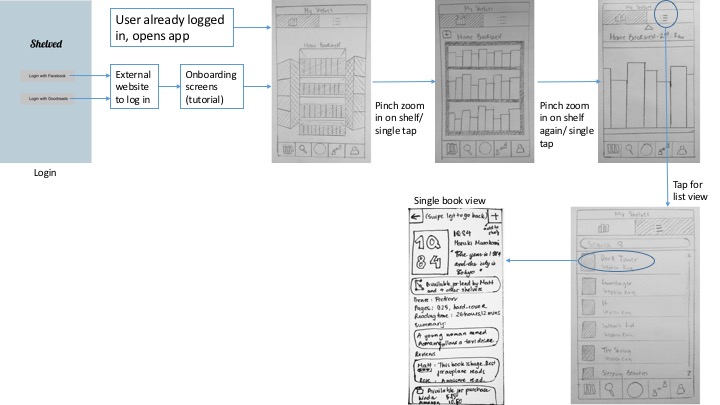 Shelved
Login with Facebook
Login with Goodreads
Login
User already logged
in, opens app
External
website
to log in
Onboarding
screens
(tutorial)
My Shelves
Home Bookshelf
Pinch zoom
in on shelf/
single tap
My Shelves
Home Bookshelf
Pinch zoom
in on shelf
again/ single
tap
My Shelves
Home Bookshelf
Tap for
list view
My Shelves
Search
Dark Tower
Stephen King
Stephen King
It
Stephen King
Salem's Lot
Stephen King
The Shining
Stephen King
Sleeping Beauties
Single book view
(Swipe left to go back)
add to
1Q
84
1Q84
Haruki Murakami
"The year is 1984
and the city is
Tokyo"
Available for lend by Matt
and 4 other shelves
Genre: Fiction
Pages: 925, hard-cover
Reading time: 26 hours, 12 mins
Summary:
A young woman named
Aomame follows a taxi driver
Reviews
Matt: This book is huge. Best
for airplane reads
Rose: Awesome read
Available for purchase